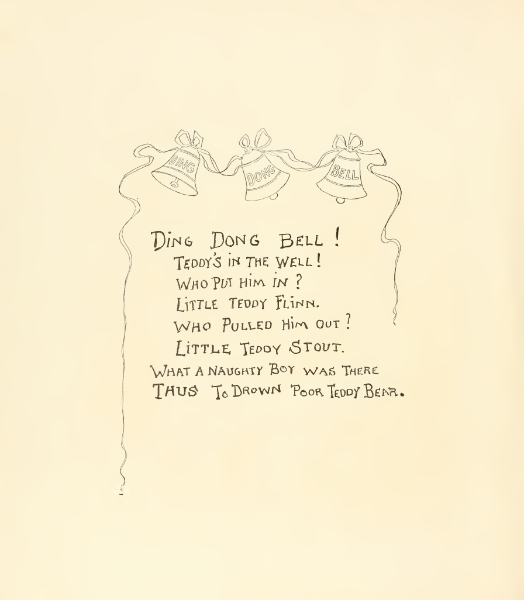 DING
DONG
BELL
DING DONG BELL!
TEDDY'S IN THE WELL!
WHO PUT HIM IN?
LITTLE TEDDY FLINN.
WHO PULLED HIM OUT?
LITTLE TEDDY STOUT.
WHAT A NAUGHTY BOY WAS THERE
THUS TO DROWN POOR TEDDY BEAR.